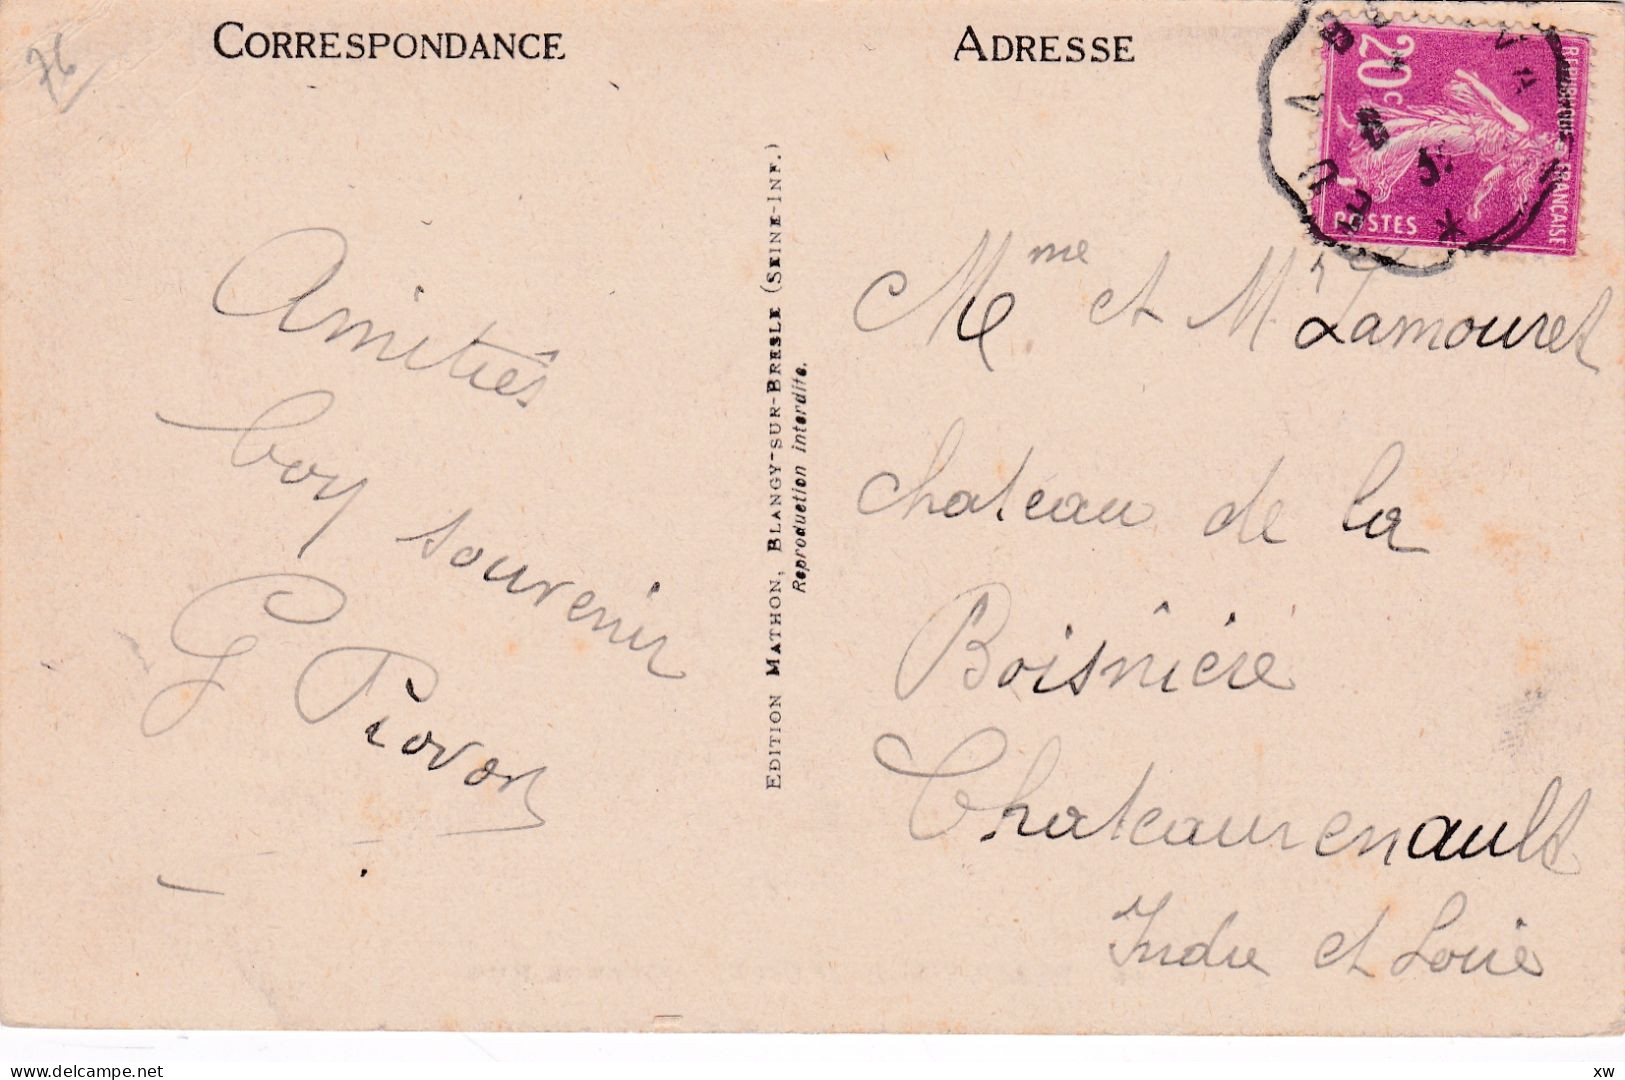 76
CORRESPONDANCE
Amitiés
bon souvenir
G Provost
EDITION MATHON, BLANGY-SUR-BRESLE (SEINE-INF.)
Reproduction interdite.
ADRESSE
20c
REPUBLIQUE FRANÇAISE
POSTES
Mme et Mr Lamouret
chateau de la
Boisnière
Chateaurenault
Indre et Loire
www.delcampe.net
xw